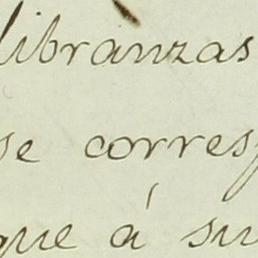 libranzas
se corresp
que á su